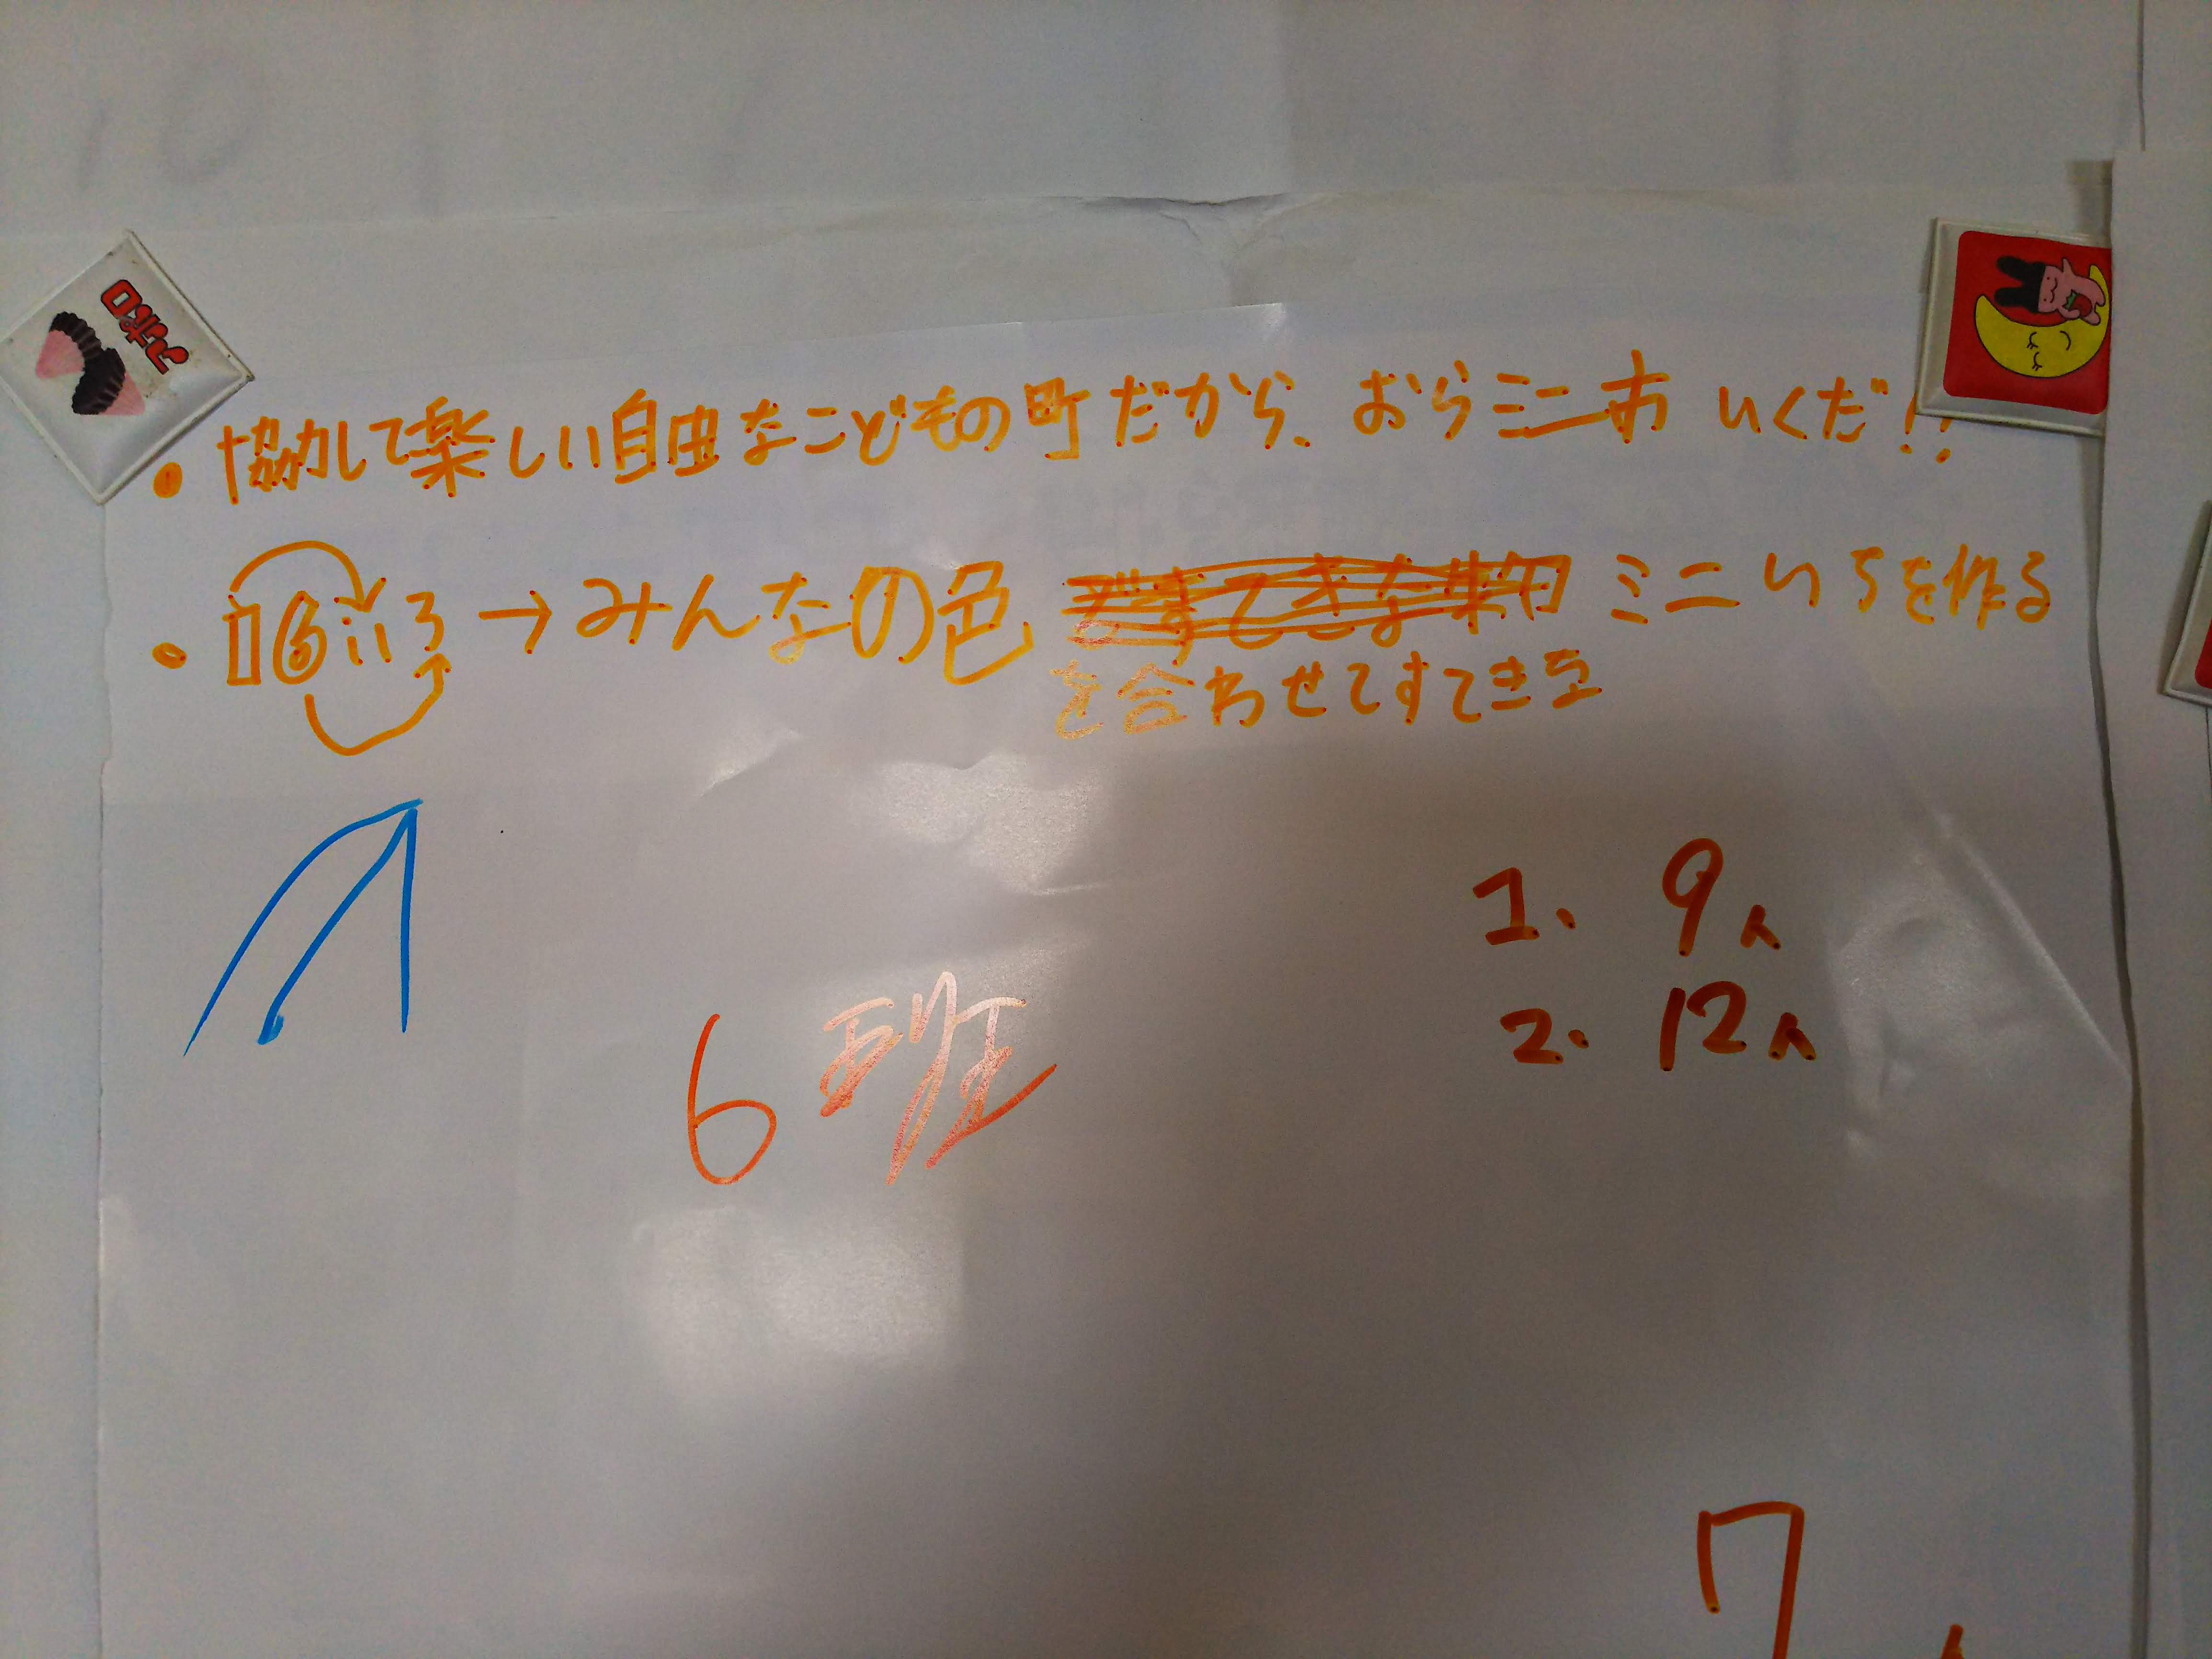 アポロ
・協力して楽しい自由なこどもの町だから、おらミニ市 いくだ!!
・16いろ→みんなの色 ミニいちを作る
を合わせてすてきな
1. 9人
2. 12人
6班
7